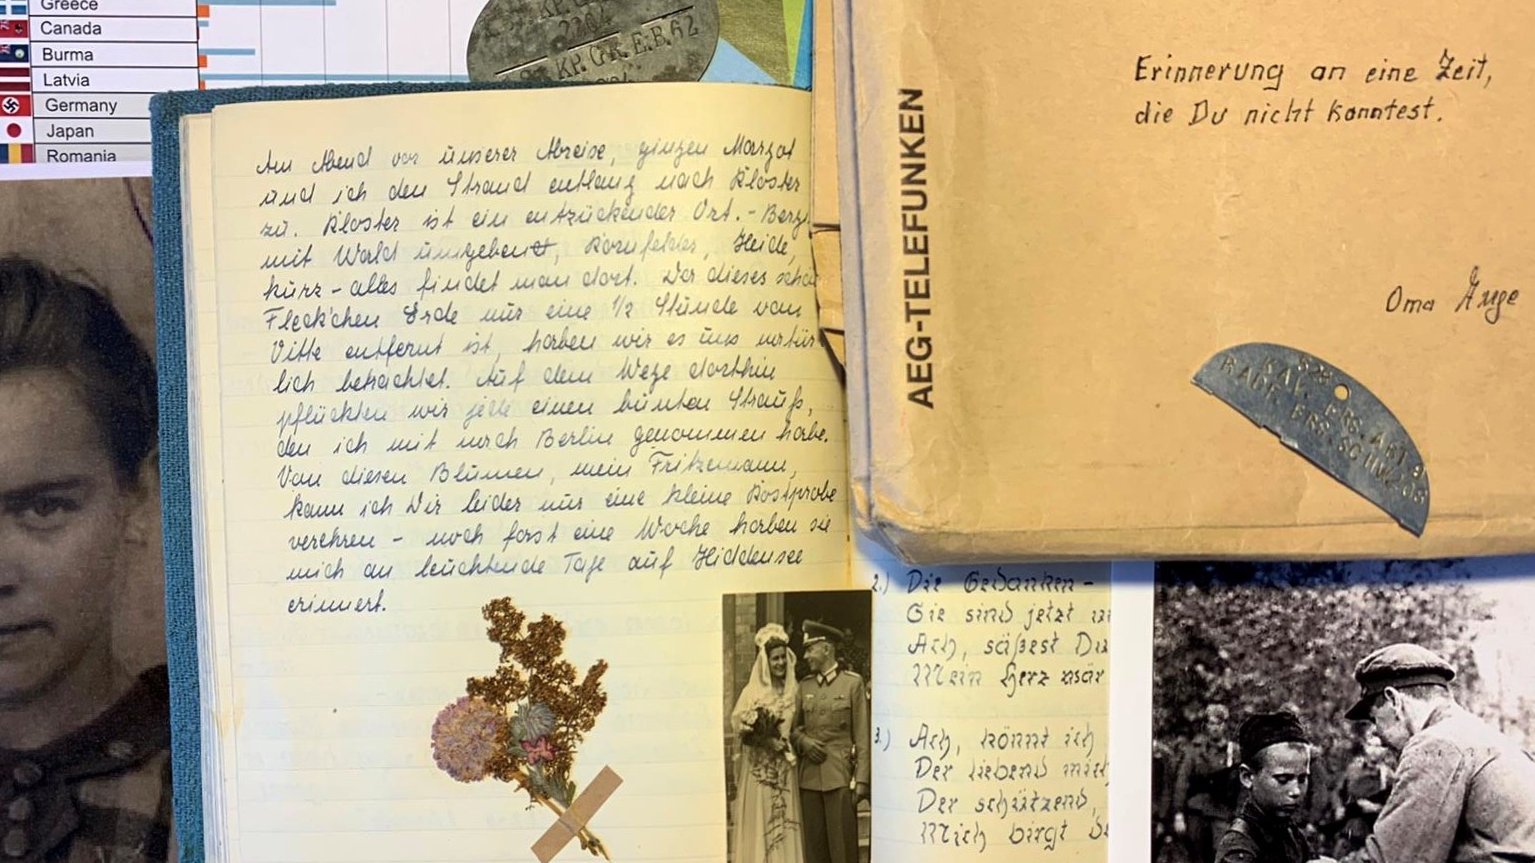 Greece
Canada
Burma
Latvia
Germany
Japan
Romania
2202
KP. GR. E.B. 62
Am Abend vor unserer Abreise, gingen Margot
und ich den Strand entlang nach Kloster
zu. Kloster ist ein entzückender Ort. - Berge
mit Wald umgeben, Kornfelder, Heide,
kurz - alles findet man dort. Da dieses schö
Fleck'chen Erde nur eine 1/2 Stunde von
Vitte entfernt ist, haben wir es uns natür
lich betrachtet. Auf dem Wege dorthin
pflückten wir jede einen bunten Strauß,
den ich mit nach Berlin genommen habe.
Von diesen Blumen, mein Fritzemann,
kann ich Dir leider nur eine kleine Kostprobe
verehren - noch fast eine Woche haben sie
mich an leuchtende Tage auf Hiddensee
erinnert.
AEG-TELEFUNKEN
Erinnerung an eine Zeit,
die Du nicht kanntest.
Oma Inge
528
KAV. ERS. ABT. 8
RADF. ERS. SCHW.
2.) Die Gedanken -
Sie sind jetzt
Ach, säßest Du
Mein Herz wär
3.) Ach, könnt ich
Der liebend mich
Der schützend,
Mich birgt